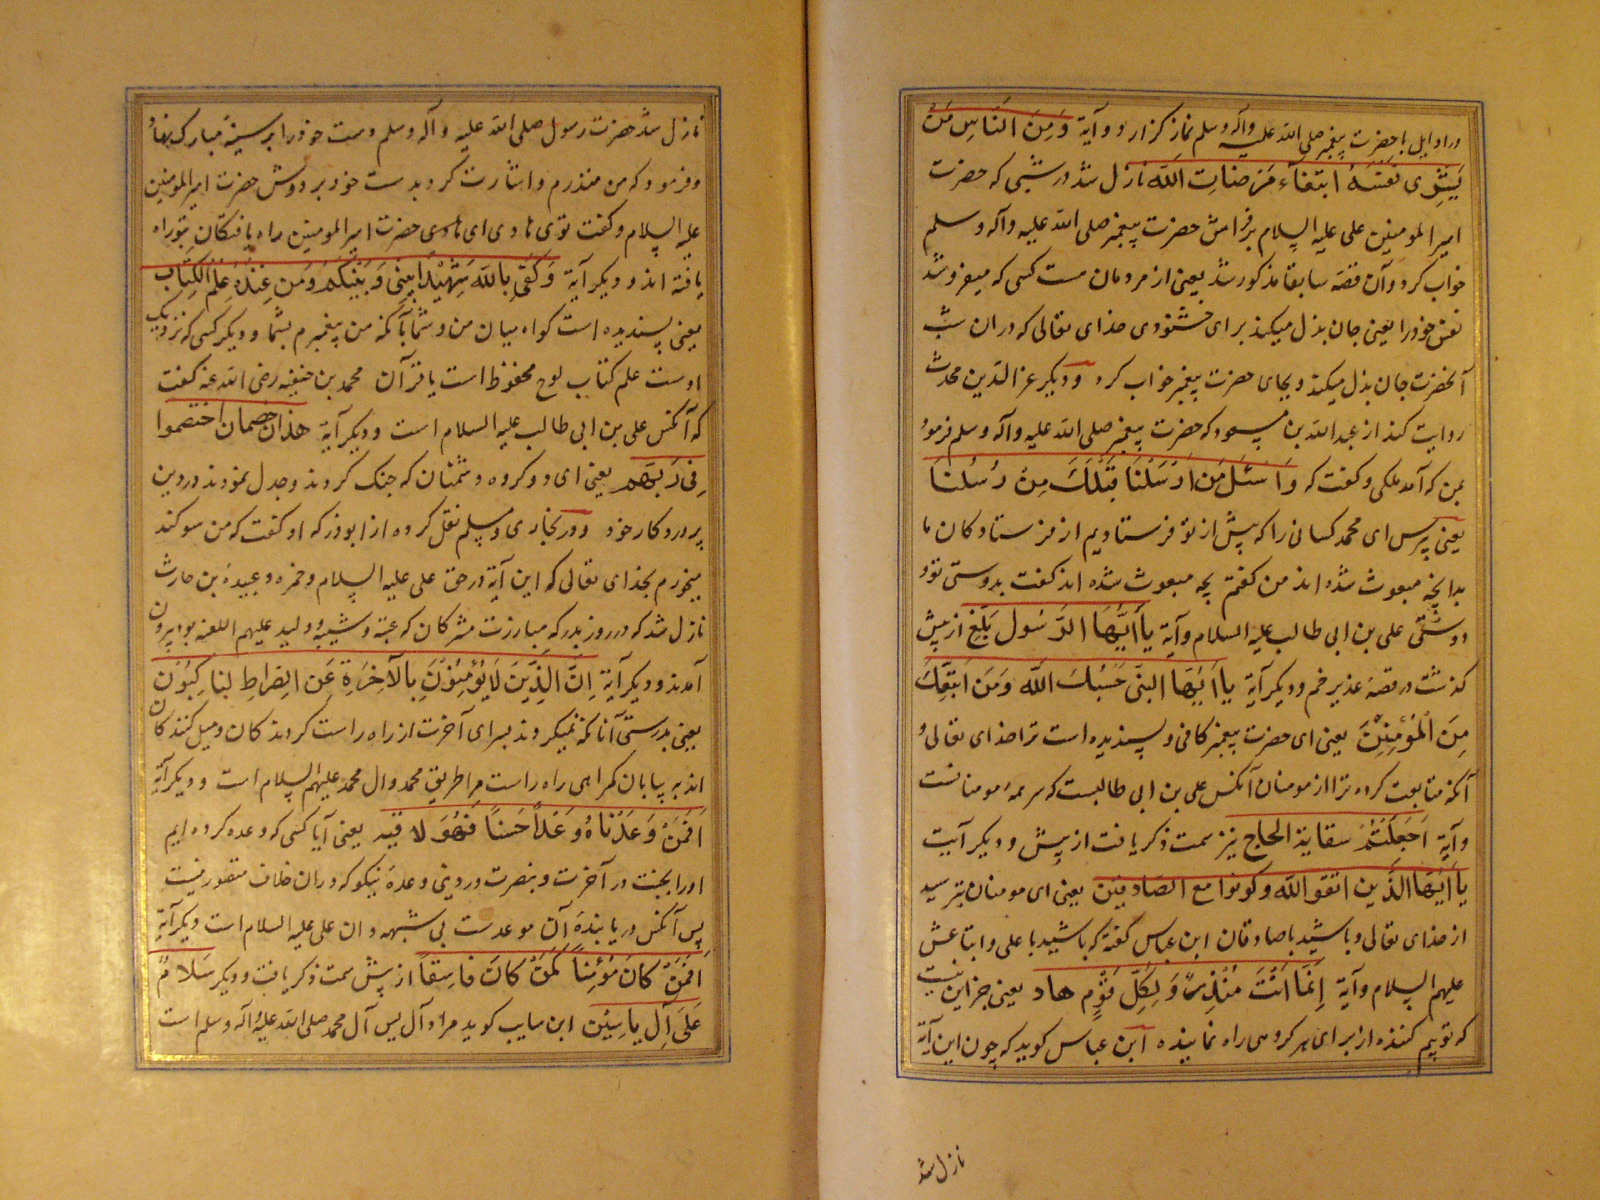 در اوایل با حضرت پیغمبر صلی الله علیه وآله وسلم نماز کزارد و وآیة وَمِنَ النَاسِ مَنْ
یَشْرِی نَفْسَهُ ابتغاء مَرضَاتِ الله نازل شد در شبی که حضرت
امیر المومنین علی علیه السلام بر فراش حضرت پیغمبر صلی الله علیه وآله وسلم
خواب کرد وآن قصه سابقا مذکور شد یعنی از مردمان هست کسی که میفروشد
نفس خود را یعنی جان بذل میکند برای خشنودی خدای تعالی که در ان شب
آنحضرت جان بذل میکند و بجای حضرت پیغمبر خواب کرد و دیکر عز الدین محدث
روایت کند از عبد الله بن مسعود که حضرت پیغمبر صلی الله علیه وآله وسلم فرمود
بمن که آمد ملکی و کفت که وَاسْئَلْ مَن اَرْسَلْنَا قَبْلَكَ مِنْ رُسُلنَا
یعنی بپرس ای محمد کسانی را که پیش از تو فرستادیم از فرستادکان ما
بدانچه مبعوث شده اند من کفتم بچه مبعوث شده اند کفت بدوستی تو و
دوستی علی بن ابی طالب علیه السلام وآیة یا اَیُّهَا الرَسُول بَلّغ از پیش
کذشت در قصهٔ غدیر خم و دیکر آیة یا اَیُّهَا النبیّ حَسْبُكَ اللّه وَمَنَ اتَّبَعَكَ
مِنَ الْمُؤْمِنِیْنَ یعنی ای حضرت پیغمبر کافی و پسندیده است ترا خدای تعالی و
آنکه متابعت کرده ترا از مومنان آنکس علی بن ابی طالبست که سر همهٔ مومنانست
وآیة اَجَعَلْتُمْ سقایة الحاج نیز سمت ذکر یافت از پیش و دیکر آیت
یا اَیُّهَا الَّذین اتقو الله وکونوا مع الصادقین یعنی ای مومنان بترسید
از خدای تعالی و باشید با صادقان ابن عباس کفته که باشید با علی و اتباعش
علیهم السلام وآیة اِنَّمَا اَنْتَ مُنْذِرٌ وَلِكُلِّ قَوْمٍ هاد یعنی جز این نیست
که تو بیم کننده از برای هر کروهی راه نماینده ابن عباس کوید که چون این آیة
نازل شد
نازل شد حضرت رسول صلی الله علیه وآله وسلم دست خود را بر سینهٔ مبارک نهاد
و فرمود که من منذرم و اشارت کرد بدست خود بر دوش حضرت امیر المومنین
علیه السلام و کفت توی هادی ای هادی حضرت امیر المومنین راه یافتکان بتو راه
یافته اند و دیکر آیة وَكَفَی بِاللّه شَهِیْدًا بینی وَبَیْنَكُمْ وَمَن عِنْدَهُ عِلْمُ الْكِتَاب
یعنی پسندیده است کواه میان من و شما بآنکه من پیغمبرم بشما و دیکر کسی که نزدیک
اوست علم کتاب لوح محفوظ است یا قرآن محمد بن حنیفه رضی الله عنه کفت
که آنکس علی بن ابی طالب علیه السلام است و دیکر آیة هذان خصمان اختصموا
فِی رَبِّهِم یعنی ای دو کروه دشمنان که جنک کردند و جدل نمودند در دین
پروردکار خود و در بخاری و مسلم نقل کرده از ابو ذر که او کفت که من سوکند
میخورم بخدای تعالی که این آیة در حق علی علیه السلام و حمزه و عبیدهٔ بن حارث
نازل شد که در روز بدر که مبارزت مشرکان که عتبه و شیبه و ولید علیهم اللعنه بود بیرون
آمدند و دیکر آیة اِنَّ الَّذِیْنَ لَایُؤْمِنُوْنَ بِالآخِرَةِ عَنِ الصِراطِ لَنَاكِبُوْنَ
یعنی بدرستی آنانکه نمیکروند بسرای آخرت از راه راست کردندکان و میل کنندکان
اند به بیابان کمراهی راه راست مراطریق محمد وال محمد علیهم السلام است و دیکر آیة
اَفَمَنْ وَعَدْنَاهُ وَعْدًا حَسَنًا فَهُوَ لاقیه یعنی آیا کسی که وعده کرده ایم
او را بجنت در آخرت و بنصرت در دینی وعدهٔ نیکو که در ان خلاف متصور نیست
پس آنکس دریابندهٔ آن موعدست بی شبهه و ان علی علیه السلام است دیکر آیة
اَفَمَنْ كانَ مُؤْمِنًا كَمَنْ كانَ فاسِقًا از پیش سمت ذکر یافت و دیکر سَلامٌ
عَلَی آلِ یاسِیْن ابن سایب کوید مراد آل یس آل محمد صلی الله علیه وآله وسلم است